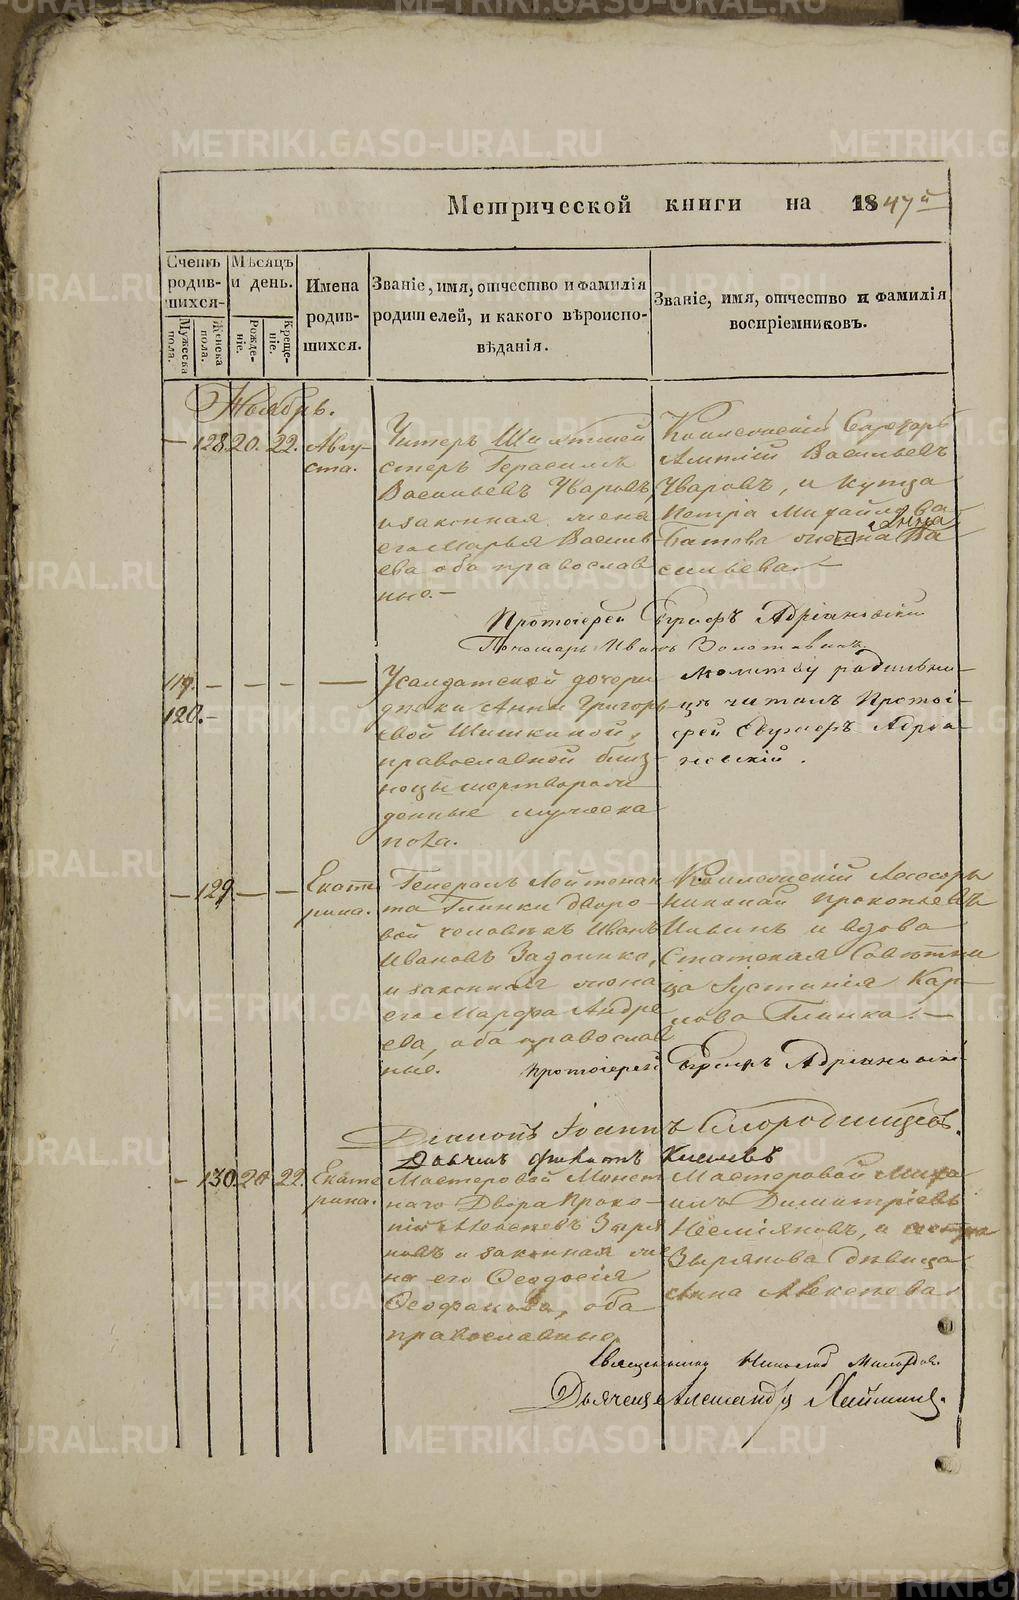 Метрической книги на 1847й
Счетъ родив-шихся-
Мужеска пола.
Женска пола.
Мѣсяцъ и день.
Рожде-ніе.
Креще-ніе.
Имена родив-шихся.
Званіе, имя, отчество и фамилія
родителей, и какого вѣроиспо-
вѣданія.
Званіе, имя, отчество и фамилія
воспріемниковъ.
Ноябрь.
— 128. 20. 22. Авгу-
ста.
Унтеръ
стеръ Герасимъ
Васильевъ Уваровъ,
и законная жена
его Марья Василь
ева оба православ
ные.—
Коллежскій Секретарь
Васильевъ
Уваровъ, и купца
Петра Михайлова
жена Анна Ва
сильева.—
Протоіерей Евграфъ Адріановскій
Пономарь Иванъ
119. — — — —
120. —
дочери
Анны Григорь
евой Шишкиной,
православной близ-
нецы мертворож
денные мужеска
пола.
Молитву родильни-
цѣ читалъ Протоі-
ерей Евграфъ Адріа-
новскій.
— 129. — — Екате
рина.
Генералъ Лейтенан
та Глинки дворо-
вой человѣкъ Иванъ
Ивановъ
и законная жена
его Марфа Андре
ева, оба православ
ные.
Коллежскій Ассесоръ
Николай Прокопьевъ
Ильинъ и вдова
Статская Совѣтни
ца Іустинія Кар-
пова Глинка.—
Протоіерей Евграфъ Адріановскій
Діаконъ Іоаннъ Смородинцевъ.
Дьячекъ Киселевъ
— 130 20 22. Екате
рина.
Мастеровой Монет
наго Двора Проко-
пій Алексѣевъ Зыря
новъ и законная же
на его Ѳеодосія
Ѳеофанова, оба
православные.
Мастеровой Миха
илъ Димитріевъ
и сестра
Зырянова дѣвица
Анна Алексѣева.
Священникъ Николай
Дьячекъ Александръ
METRIKI.GASO-URAL.RU